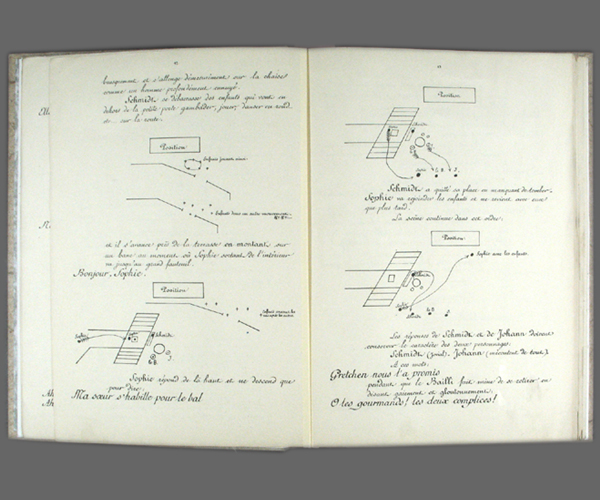 brusquement et s'allonge démesurément sur la chaise
comme un homme profondément ennuyé.
Schmidt, se débarrasse des enfants qui vont en
dehors de la petite porte gambader, jouer, danser en rond,
etc... sur la route.
Position
Enfants jouant ainsi
Enfants dans un autre mouvement
et il s'avance près de la terrasse en montant, sur
un banc au moment où Sophie sortant de l'intérieur
va jusqu'au grand fauteuil.
Bonjour, Sophie.
Position
Sophie répond de là haut et ne descend que
pour dire:
Ah
Ma sœur s'habille pour le bal
Ah
Position
Schmidt a quitté sa place en manquant de tomber.
Sophie va rejoindre les enfants et ne revient avec eux
que plus tard.
La scène continue dans cet ordre:
Position
Sophie avec les enfants.
Les réponses de Schmidt et de Johann doivent
conserver le caractère des deux personnages.
Schmidt (gai), Johann (mécontent de tout).
A ces mots:
Gretchen nous l'a promis
pendant que le Bailli fait mine de se retirer en
disant gaiement et gloutonnement:
O les gourmands! les deux complices!